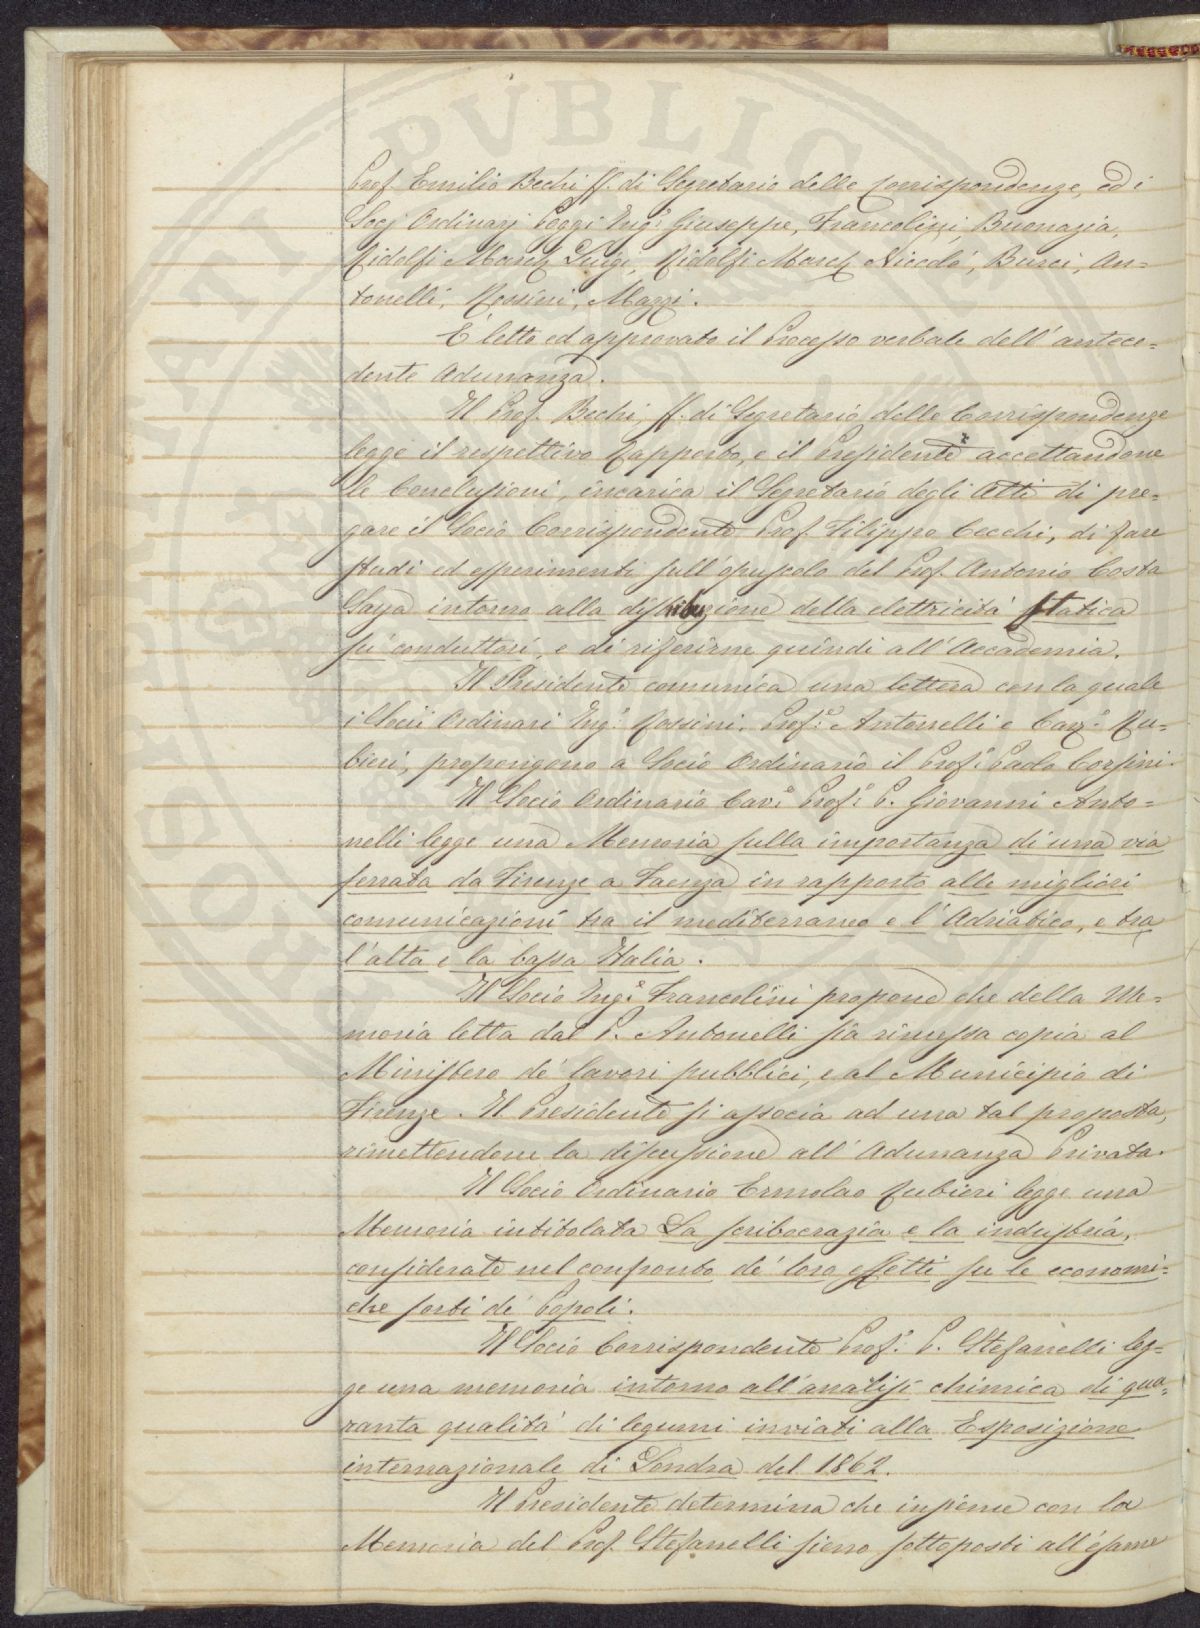 Prof. Emilio Bechi ff. di Segretario delle Corrispondenze, ed i
Socj Ordinarj Poggi Ing.e Giuseppe, Francolini, Buonazia,
Ridolfi March. Luigi, Ridolfi March. Niccolò, Burci, An-
tonelli, Rossini, Mazzi.
È letto ed approvato il Processo verbale dell' antece-
dente Adunanza.
Il Prof. Bechi, ff. di Segretario delle Corrispondenze
legge il respettivo Rapporto, e il Presidente accettandone
le Conclusioni, incarica il Segretario degli Atti di pre-
gare il Socio Corrispondente Prof. Filippo Cecchi, di fare
studi ed esperimenti sull' opuscolo del Prof. Antonio Costa
Saya intorno alla distribuzione della elettricità statica
su' conduttori, e di riferirne quindi all' Accademia.
Il Presidente comunica una lettera con la quale
i Socii Ordinari Ing.e Rossini, Prof.e Antonelli e Cav.e Ru-
bieri, propongono a Socio Ordinario il Prof.e Paolo Corsini.
Il Socio Ordinario Cav.e Prof.e P. Giovanni Anto-
nelli legge una Memoria sulla importanza di una via
ferrata da Firenze a Faenza in rapporto alle migliori
comunicazioni tra il mediterraneo e l' Adriatico, e tra
l' alta e la bassa Italia.
Il Socio Ing.e Francolini propone che della Me-
moria letta dal P. Antonelli sia rimessa copia al
Ministero de' lavori pubblici, e al Municipio di
Firenze. Il Presidente si associa ad una tal proposta,
rimettendone la discussione all' Adunanza Privata.
Il Socio Ordinario Ermolao Rubieri legge una
Memoria intitolata La scribocrazia e la industria,
considerate nel confronto de' loro effetti su le economi-
che sorti de' Popoli.
Il Socio Corrispondente Prof.e P. Stefanelli leg-
ge una memoria intorno all' analisi chimica di qua-
ranta qualità di legumi inviati alla Esposizione
internazionale di Londra del 1862.
Il Presidente determina che insieme con la
Memoria del Prof. Stefanelli sieno sottoposti all' esame
PVBLICAE